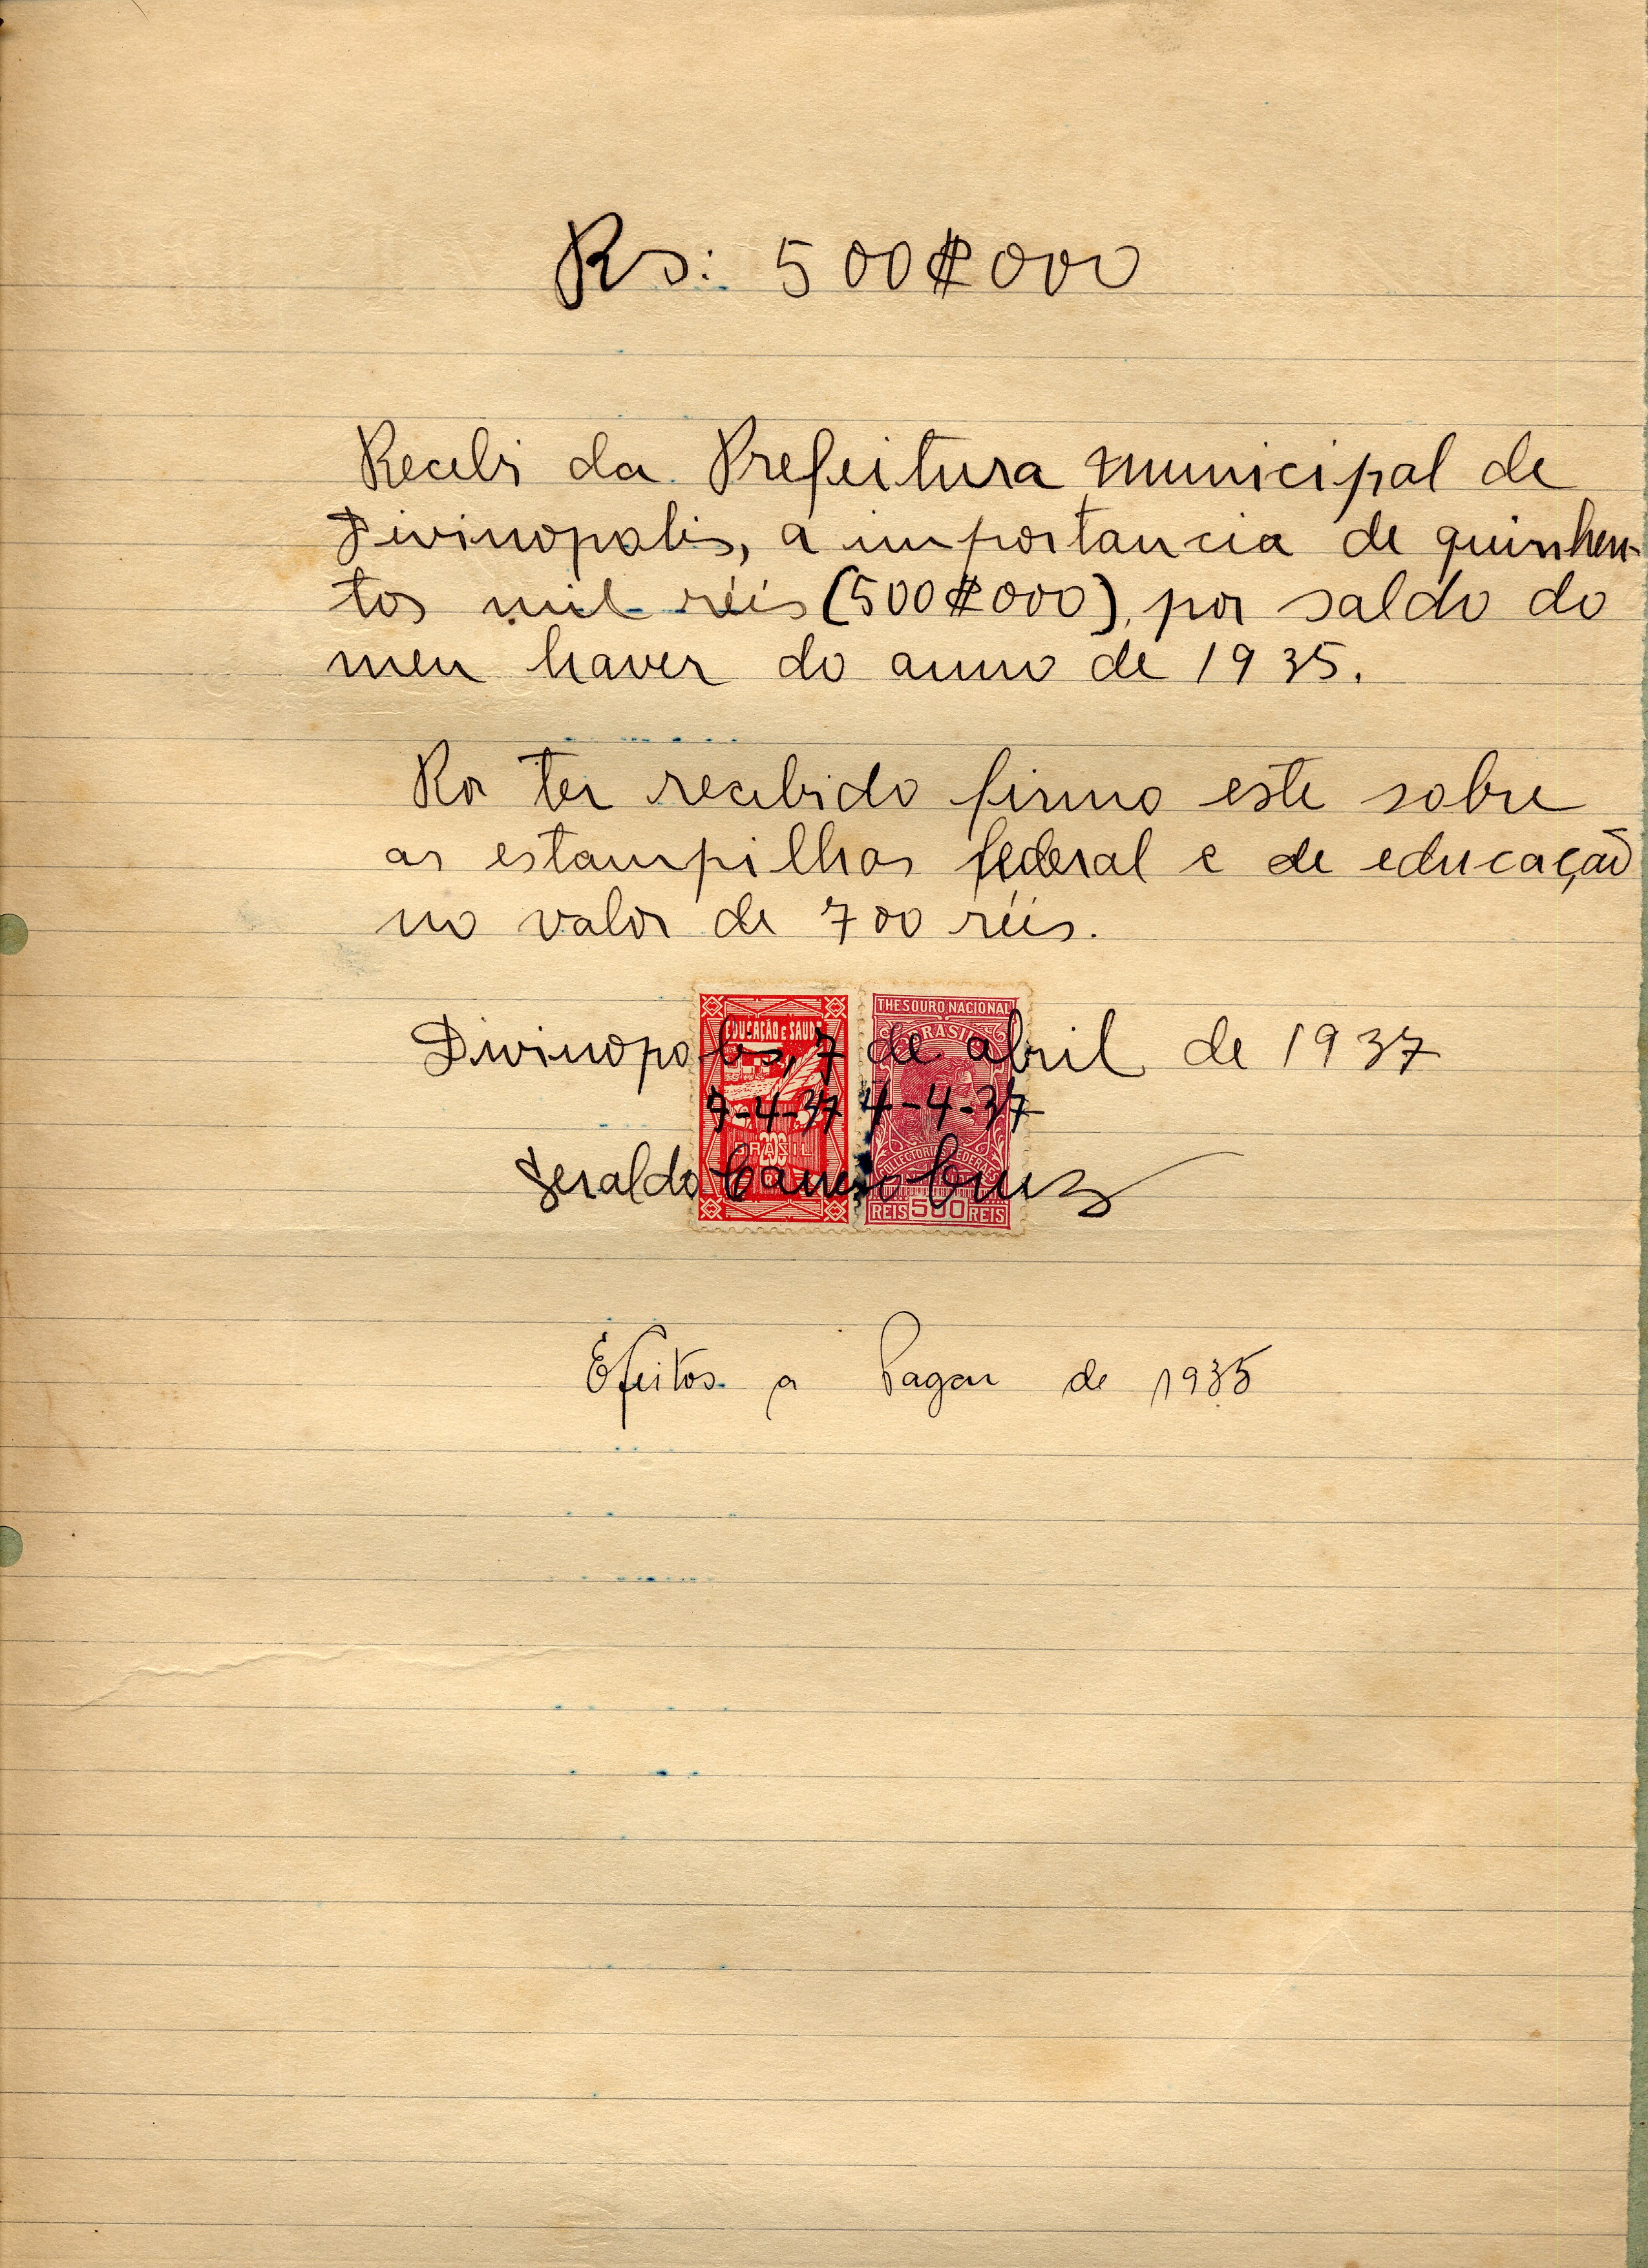 Rs: 500$000
Recebi da Prefeitura municipal de
Divinopolis, a importancia de quinhen-
tos mil réis (500$000), por saldo do
meu haver do anno de 1935.
Por ter recebido firmo este sobre
as estampilhas federal e de educação
no valor de 700 réis.
EDUCAÇÃO E SAUDE
THESOURO NACIONAL
BRASIL
Divinopolis, 7 de abril de 1937
7-4-37 7-4-37
200
BRASIL
Geraldo Cruz
REIS 500 REIS
Efeitos a Pagar de 1935